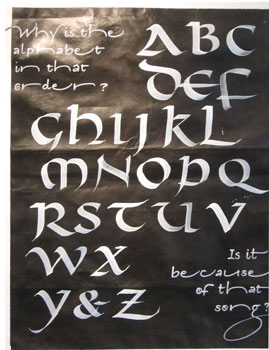 Why is the
alphabet
in that
order?
A B C
D E F
G H I J K L
M N O P Q
R S T U V
W X
Y & Z
Is it
because
of that
song?